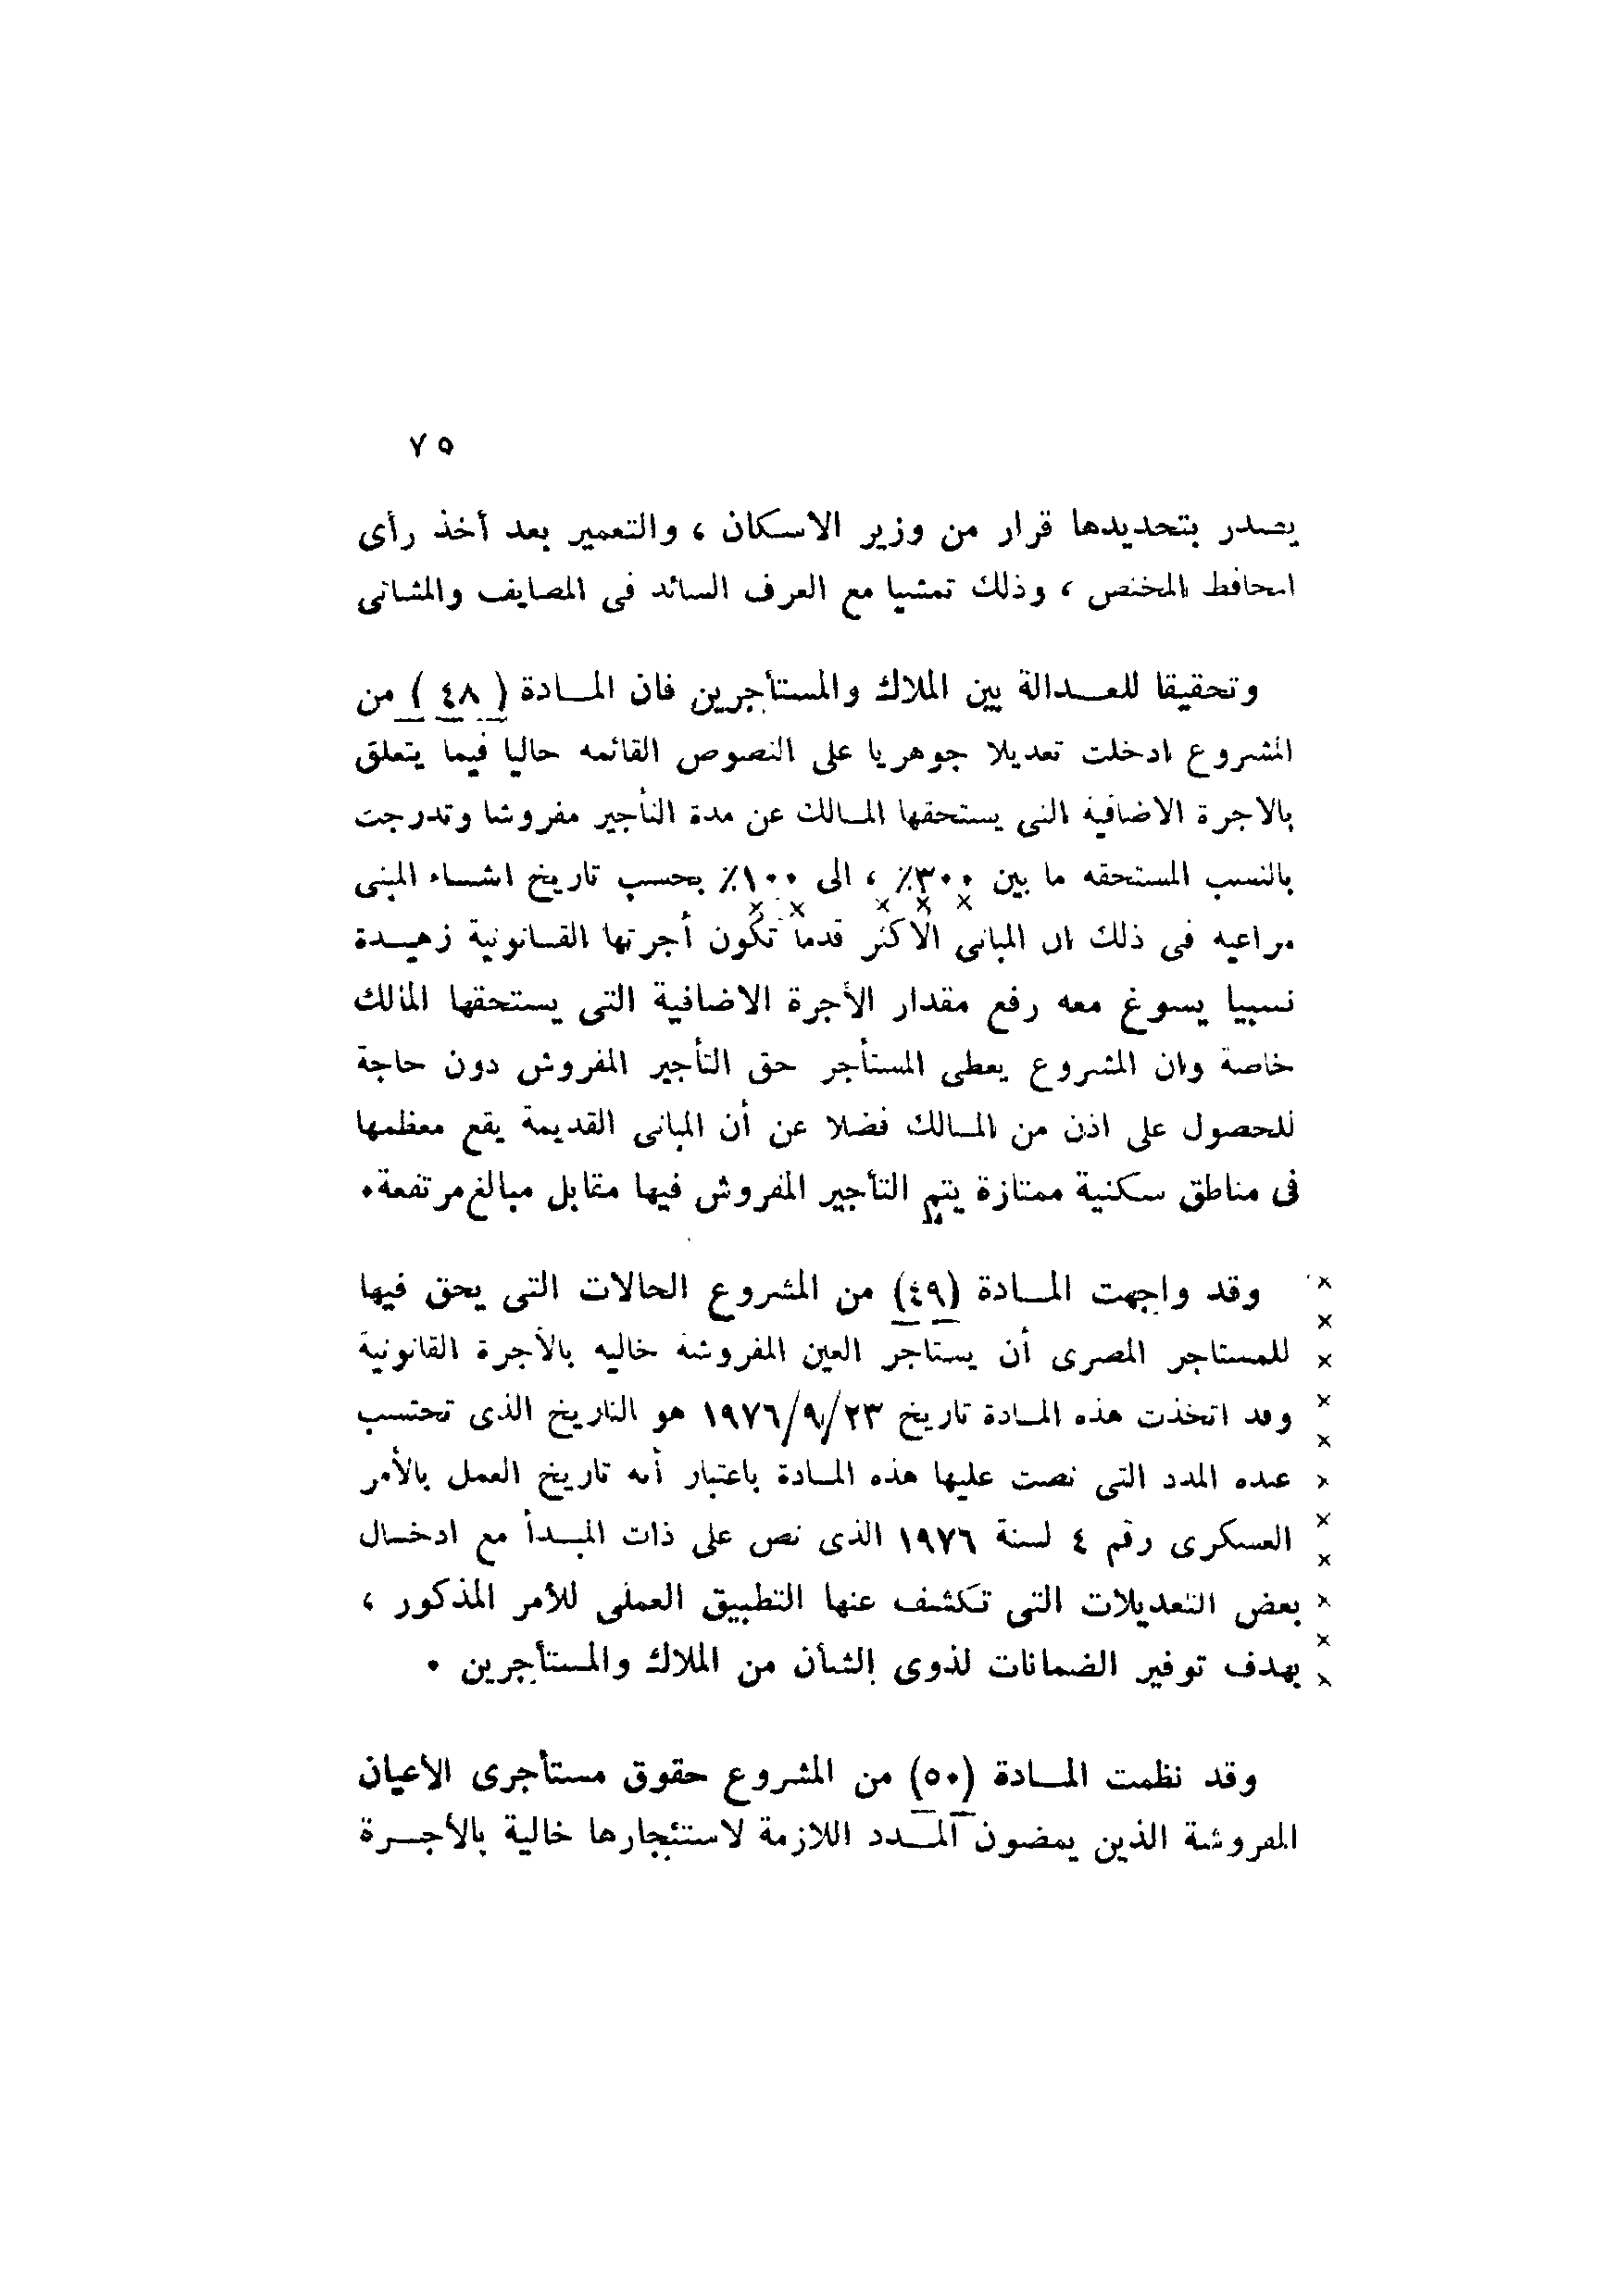 ٧٥
يصدر بتحديدها قرار من وزير الاسكان ، والتعمير بعد أخذ رأى
المحافظ المختص ، وذلك تمشيا مع العرف السائد فى المصايف والمشاتى
وتحقيقا للعــدالة بين الملاك والمستأجرين فان المــادة ( ٤٨ ) من
المشروع ادخلت تعديلا جوهريا على النصوص القائمه حاليا فيما يتعلق
بالاجرة الاضافية التى يستحقها المـالك عن مدة التأجير مفروشا وتدرجت
بالنسب المستحقه ما بين ٣٠٠٪ ، الى ١٠٠٪ بحسب تاريخ انشـاء المبنى
مراعيه فى ذلك ان المبانى الاكثر قدما تكون أجرتها القـانونية زهيـدة
نسبيا يسوغ معه رفع مقدار الأجرة الاضافية التى يستحقها المالك
خاصة وان المشروع يعطى المستأجر حق التأجير المفروش دون حاجة
للحصول على اذن من المـالك فضلا عن أن المبانى القديمة يقع معظمها
فى مناطق سكنية ممتازة يتم التأجير المفروش فيها مقابل مبالغ مرتفعة٠
× وقد واجهت المــادة (٤٩) من المشروع الحالات التى يحق فيها
× للمستاجر المصرى أن يستاجر العين المفروشة خاليه بالأجرة القانونية
× وقد اتخذت هذه المـادة تاريخ ١٩٧٦/٩/٢٣ هو التاريخ الذى تحتسب
× عنده المدد التى نصت عليها هذه المـادة باعتبار أنه تاريخ العمل بالأمر
× العسكرى رقم ٤ لسنة ١٩٧٦ الذى نص على ذات المبـدأ مع ادخـال
× بعض التعديلات التى تكشف عنها التطبيق العملى للأمر المذكور ،
× بهدف توفير الضمانات لذوى الشأن من الملاك والمستأجرين ٠
وقد نظمت المــادة (٥٠) من المشروع حقوق مستأجرى الاعيان
المفروشة الذين يمضون المــدد اللازمة لاستئجارها خالية بالأجــرة